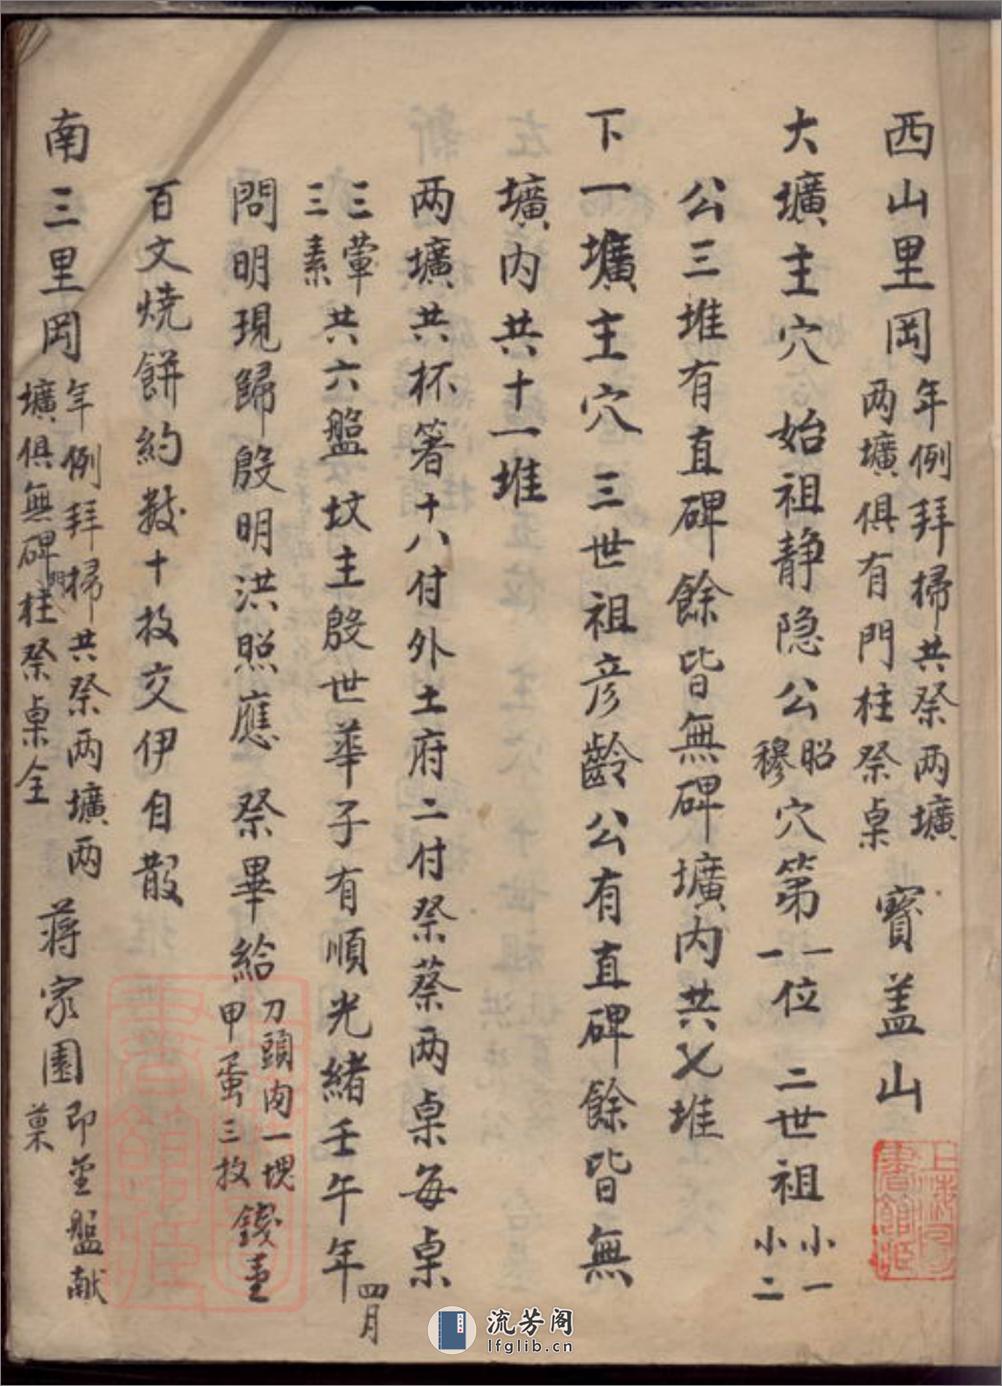 西山里岡年例拜掃共祭兩壙两壙俱有門柱祭桌 寳盖山
大壙主穴 始祖静隐公昭穆穴第一一位 二世祖小一小二
公三堆有直碑餘皆無碑壙内共乂堆
下一壙主穴 三世祖彦齡公有直碑餘皆無
壙内共十一堆
两壙共杯箸十八付外土府二付祭蔡两桌每桌
三葷三素共六盤坟主殷世華子有順光緒壬午年四月
問明現歸殷明洪照應 祭畢給刀頭肉一塊甲蛋三枚錢壹
百文燒餅約數十枚交伊自散
南三里岡年例拜掃共祭两壙两壙俱無碑門柱祭桌全 蒋家園即盤献菓
上海圖書館藏
流芳阁
lfglib.cn